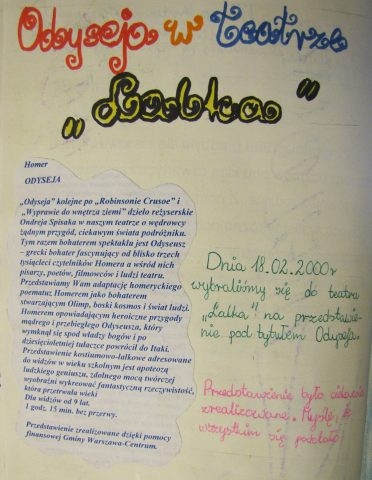 Odyseja w teatrze
„Lalka"
Homer
ODYSEJA
„Odyseja" kolejne po „Robinsonie Crusoe" i
„Wyprawie do wnętrza ziemi" dzieło reżyserskie
Ondreja Spisaka w naszym teatrze o wędrowcy
żądnym przygód, ciekawym świata podróżniku.
Tym razem bohaterem spektaklu jest Odyseusz
– grecki bohater fascynujący od blisko trzech
tysiącleci czytelników Homera a wśród nich
pisarzy, poetów, filmowców i ludzi teatru.
Przedstawiamy Wam adaptację homeryckiego
poematu z Homerem jako bohaterem
stwarzającym Olimp, boski kosmos i świat ludzi.
Homerem opowiadającym heroiczne przygody
mądrego i przebiegłego Odyseusza, który
wymknął się spod władzy bogów i po
dziesięcioletniej tułaczce powrócił do Itaki.
Przedstawienie kostiumowo-lalkowe adresowane
do widzów w wieku szkolnym jest apoteozą
ludzkiego geniuszu, zdolnego mocą twórczej
wyobraźni wykreować fantastyczną rzeczywistość,
która przetrwała wieki
Dla widzów od 9 lat.
1 godz. 15 min. bez przerwy.
Przedstawienie zrealizowane dzięki pomocy
finansowej Gminy Warszawa-Centrum.
Dnia 18.02.2000r
wybraliśmy się do teatru
„Lalka" na przedstawie-
nie pod tytułem Odyseja.
Przedstawienie było ciekawie
zrealizowane. Myślę, że
wszystkim się podobało!